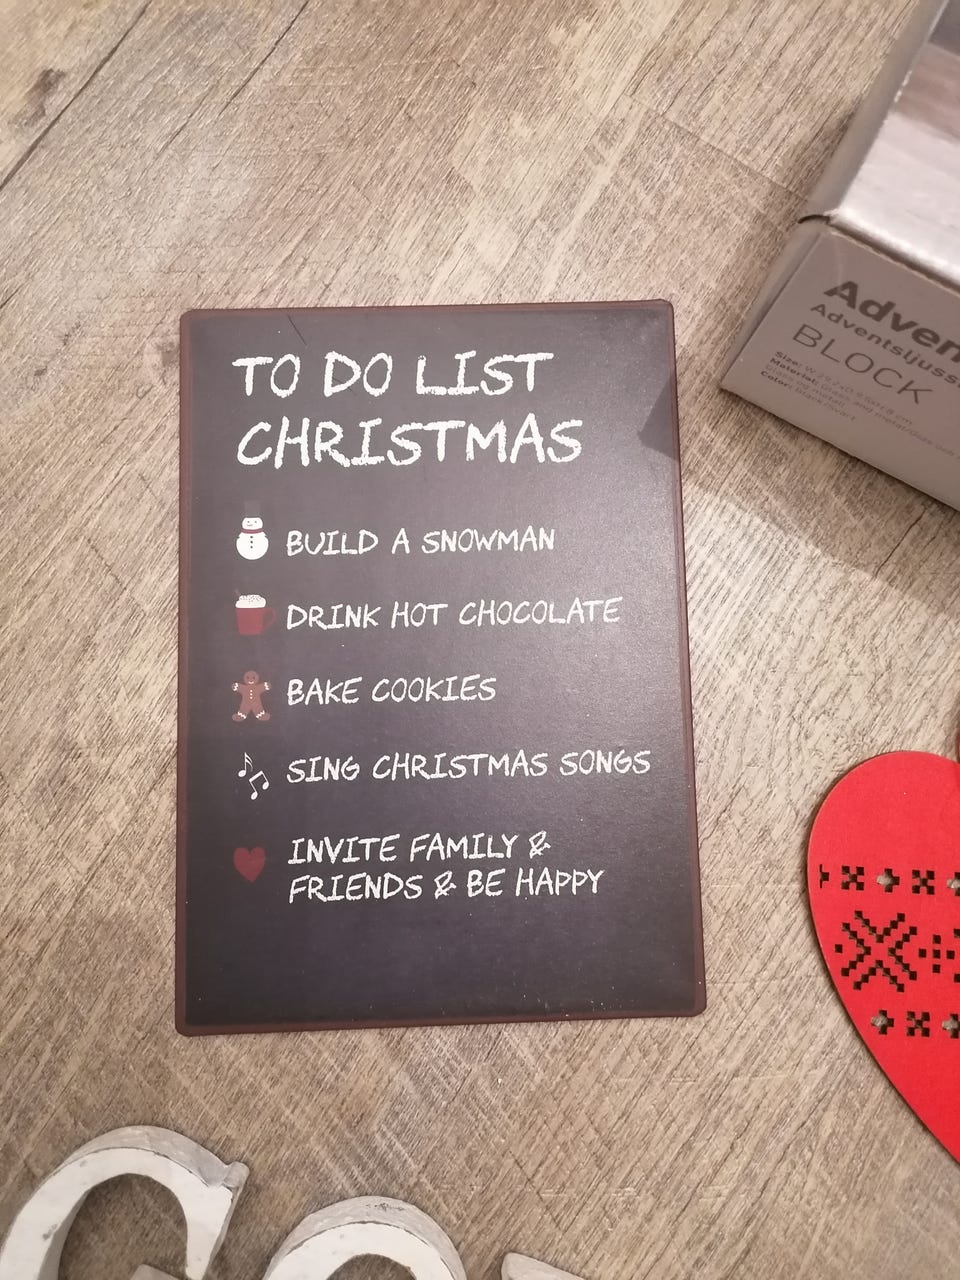 TO DO LIST
CHRISTMAS
BUILD A SNOWMAN
DRINK HOT CHOCOLATE
BAKE COOKIES
SING CHRISTMAS SONGS
INVITE FAMILY &
FRIENDS & BE HAPPY
Adven
Adventsljuss
BLOCK
Size:
Material:
Color: